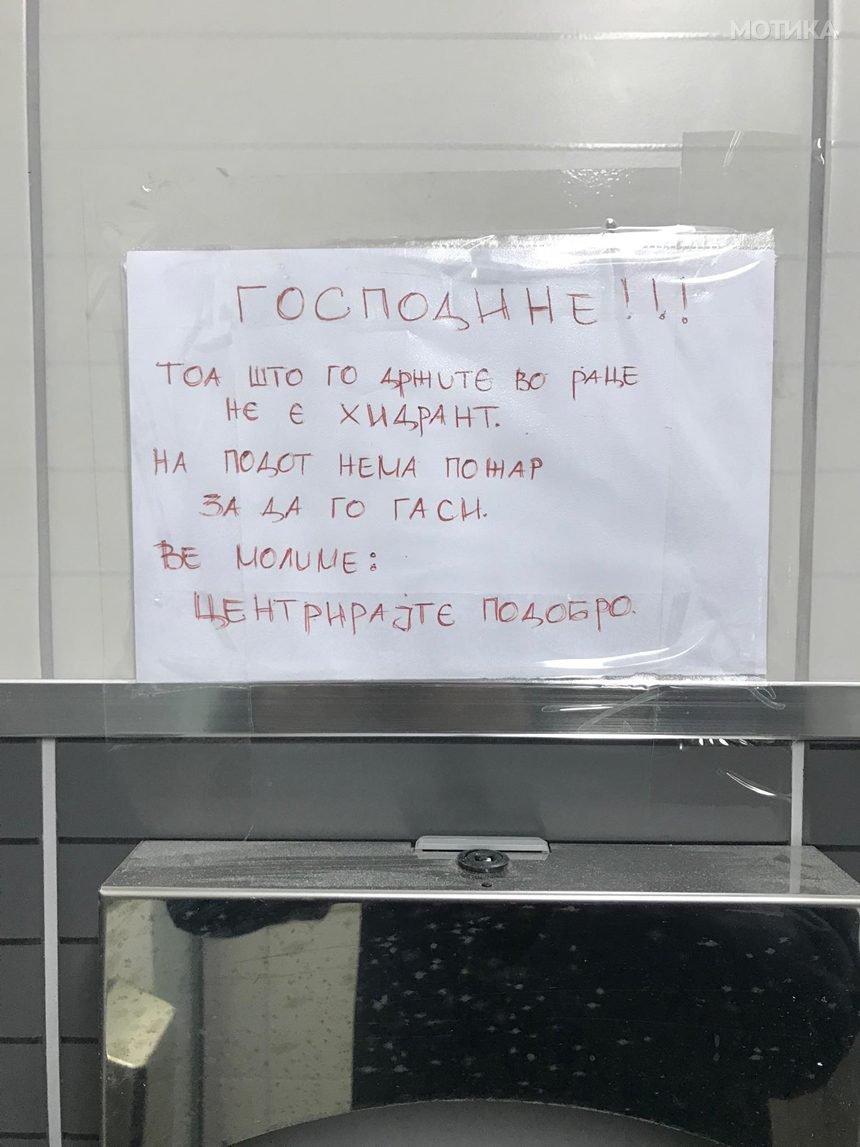 МОТИКА
ГОСПОДИНЕ!!!
ТОА ШТО ГО ДРЖИТЕ ВО РАЦЕ
НЕ Е ХИДРАНТ.
НА ПОДОТ НЕМА ПОЖАР
ЗА ДА ГО ГАСИ.
ВЕ МОЛИМЕ:
ЦЕНТРИРАЈТЕ ПОДОБРО.